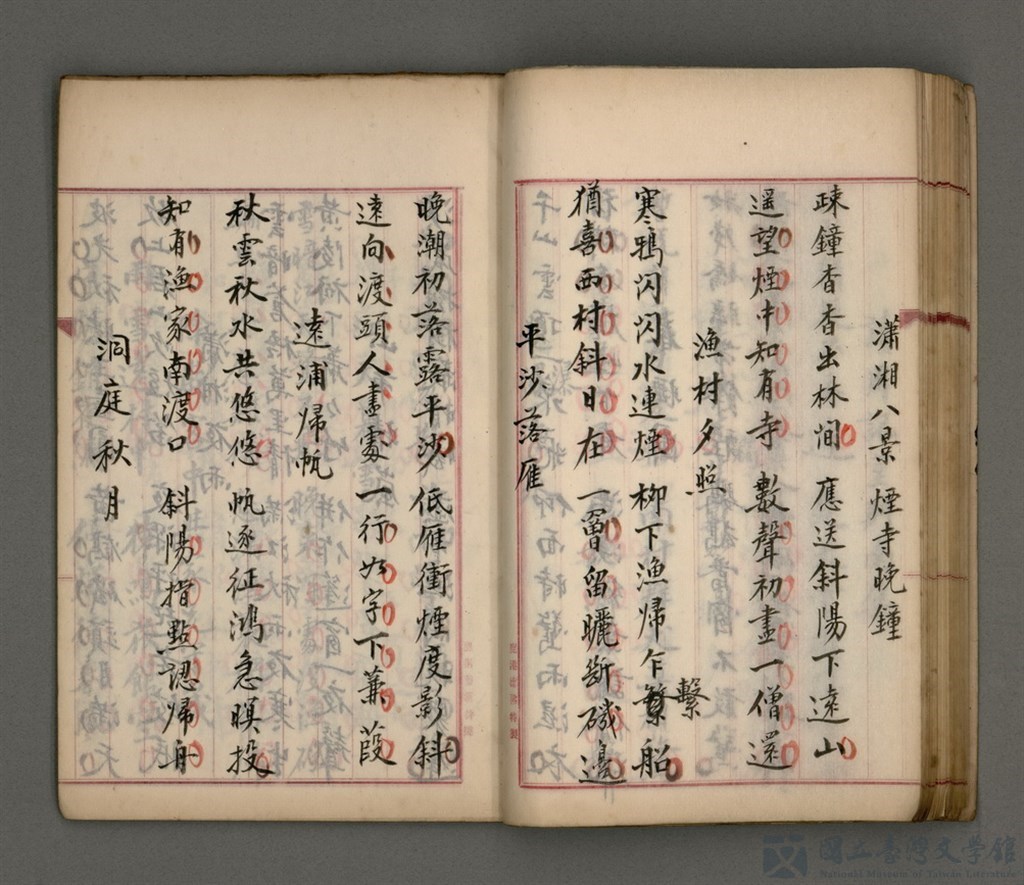 瀟湘八景 煙寺晚鐘
疎鐘杳杳出林間 應送斜陽下遠山
遥望煙中知有寺 數聲初盡一僧還
漁村夕照
寒鴉閃閃水連煙 柳下漁歸乍繫船
繫
猶喜西村斜日在 一罾留曬斷磯邊
平沙落雁
晚潮初落露平沙 低雁衝煙度影斜
遠向渡頭人盡處 一行如字下蒹葭
遠浦帰帆
秋雲秋水共悠悠 帆逐征鴻急暝投
知有漁家南渡口 斜陽指點認帰舟
洞庭秋月
國立臺灣文學館
National Museum of Taiwan Literature